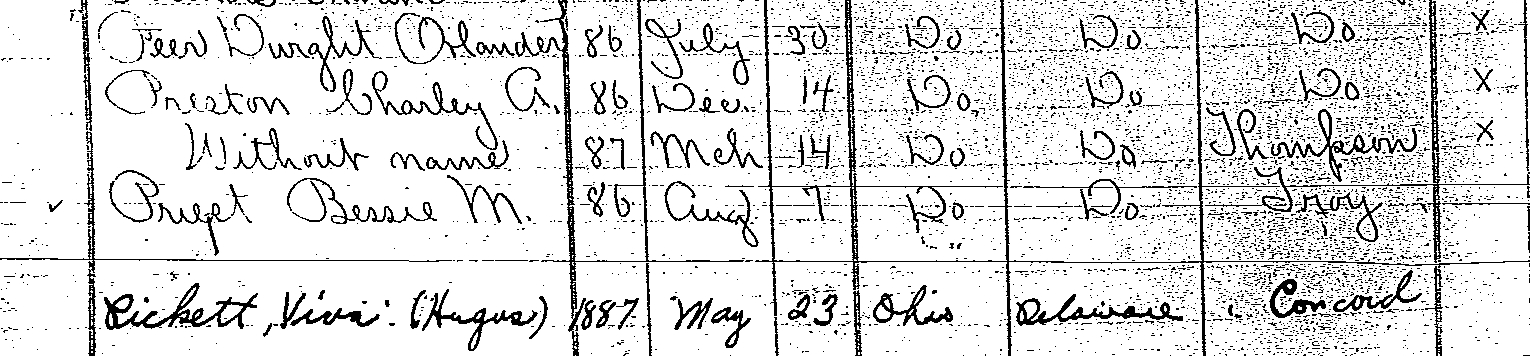 Peer Dwight Orlander 86 July 30 Do Do Do X
Preston Charley A. 86 Dec. 14 Do Do Do X
Without name 87 Mch 14 Do Do Thompson X
Bessie M. 86 Aug 7 Do Do Troy
Pickett, Viva (Hugus) 1887 May 23 Ohio Delaware Concord